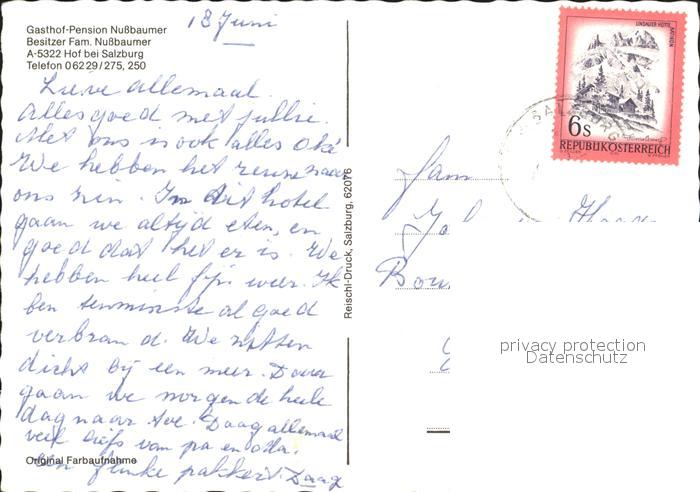 Gasthof-Pension Nußbaumer
Besitzer Fam. Nußbaumer
A-5322 Hof bei Salzburg
Telefon 06229/275, 250
18 Juni
Lieve allemaal.
Alles goed met jullie.
Met ons is ook alles oké
We hebben het reuze naar
ons zin. In dit hotel
gaan we altijd eten, en
goed dat het er is. We
hebben heel fijn weer. Ik
ben tenminste al goed
verbrand. We zitten
dicht bij een meer. Daar
gaan we morgen de hele
dag naar toe. Daag allemaal
veel liefs van pa en
Een flinke pakkert. Daag
Original Farbaufnahme
Reischl-Druck, Salzburg, 62076
LINDAUER HÜTTE
6s
REPUBLIK ÖSTERREICH
SALZBURG
Fam
privacy protection
Datenschutz